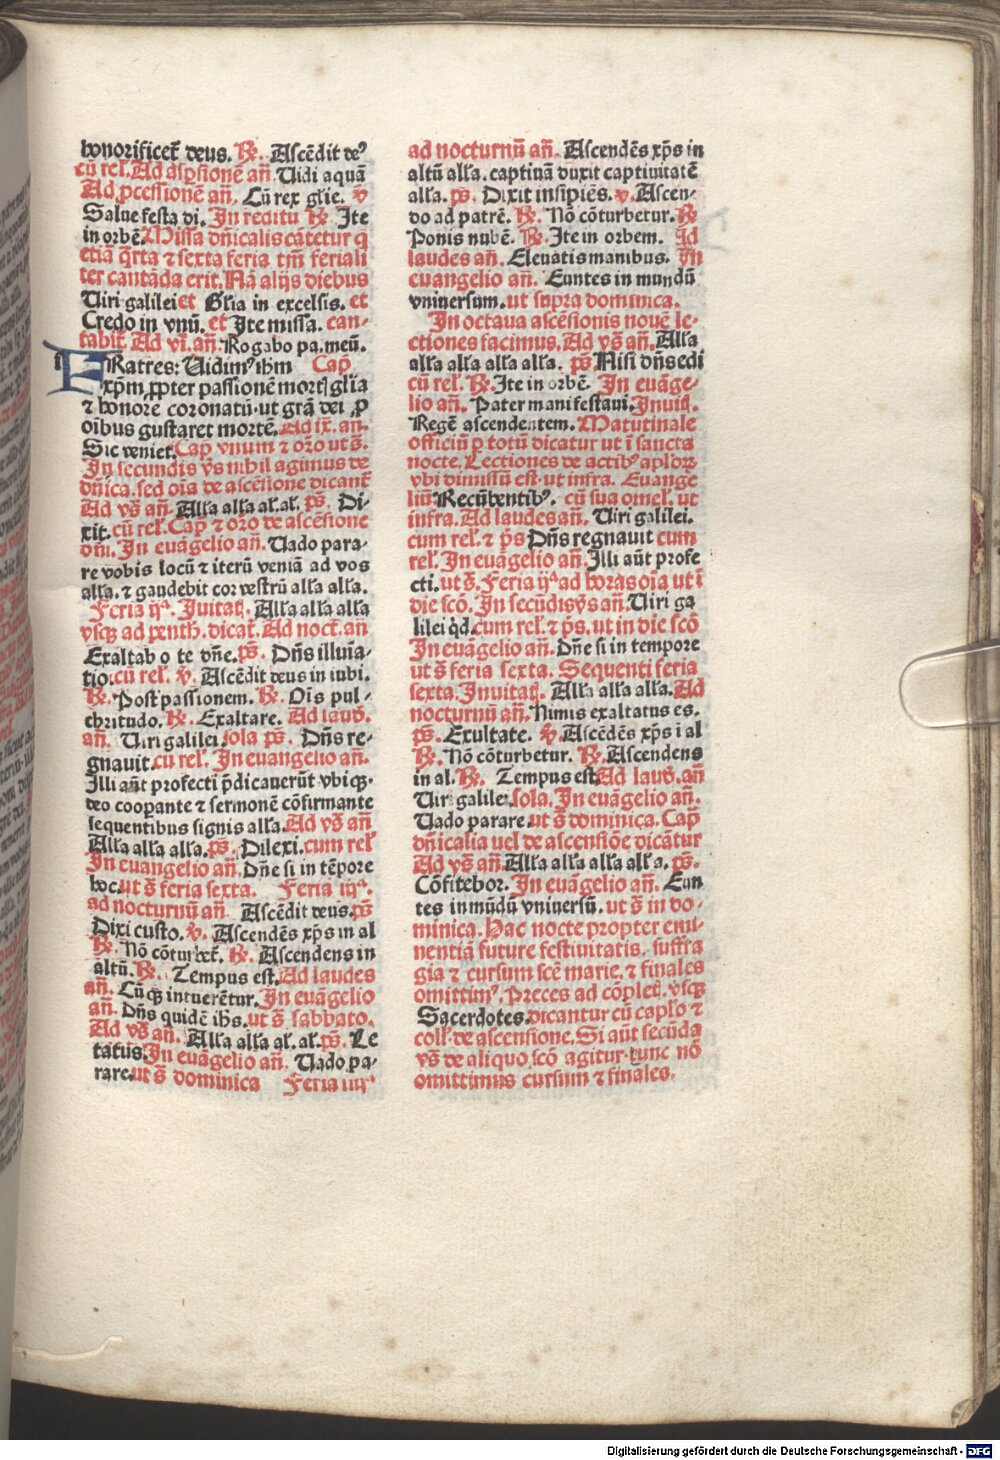 honorificet᷑ deus. ℟. Ascēdit deꝰ
cū rel̕. Ad aspsionē añ. Uidi aquā
Ad ꝓcessionē añ. Cū rex glīe. ℣
Salue festa di. In reditu ℟. Ite
in orbē. Missa dñicalis cātetur q̇
etiā q̇rta ⁊ sexta feria tm̄ feriali
ter cantāda erit. Nā alijs diebus
Uiri galilei et Glīa in excelsis. et
Credo in vnū. et Ite missa. can-
tabit᷑. Ad vī. añ. Rogabo pa. meū.
FRatres: Uidimꝰ ihm Cap̄
xp̄m, ꝓpter passionē mortꝭ glīa
⁊ honore coronatū. ut grā dei ꝓ
oībus gustaret mortē. Ad ix. añ.
Sic veniet. Cap̄ vnum ⁊ oro ut s̄.
In secundis vs̄ nihil agimus de
dñica. sed oīa de ascēsione dicant᷑
Ad vs̄ añ. Alla alla al. al. ps̄. Di-
xit. cū rel̕. Cap̄ ⁊ oro de ascēsione
dñi. In euāgelio añ. Uado para-
re vobis locū ⁊ iterū veniā ad vos
alla. ⁊ gaudebit cor vestrū alla alla.
Feria ijᵃ. Inuitaꝭ. Alla alla alla
vsqꝫ ad penth. dicat᷑. Ad noct. añ
Exaltabo te dñe. ps̄. Dñs illuīa-
tio. cū rel̕. ℣. Ascēdit deus in iubi.
℟. Post passionem. ℟. Oīs pul-
chritudo. ℟. Exaltare. Ad laud̄.
añ. Uiri galilei. sola ps̄. Dñs re-
gnauit. cu rel̕. In euangelio añ.
Illi aūt profecti p̄dicauerūt vbiqꝫ.
deo coopante ⁊ sermonē cōfirmante
sequentibus signis alla. Ad vs̄ añ
Alla alla alla. ps̄. Dilexi. cum rel̕
In euangelio añ. Dñe si in tēpore
hoc. ut s̄ feria sexta. Feria iijᵃ.
ad nocturnū añ. Ascēdit deus. ps̄
Dixi custo. ℣. Ascendēs xp̄s in al
℟. Nō cōturbet᷑. ℟. Ascendens in
altū. ℟. Tempus est. Ad laudes
añ. Cūqꝫ intuerētur. In euāgelio
añ. Dñs quidē ihs. ut s̄ sabbato.
Ad vs̄ añ. Alla alla al. al. ps̄. Le
tatus. In euāgelio añ. Uado pa-
rare. ut s̄ dominica Feria iiijᵃ
ad nocturnū añ. Ascendēs xp̄s in
altū alla. captiuā duxit captiuitatē
alla. ps̄. Dixit insipiēs. ℣. Ascen-
do ad patrē. ℟. Nō cōturbetur. ℟
Ponis nubē. ℟. Ite in orbem. Ad
laudes añ. Eleuatis manibus. In
euangelio añ. Euntes in mundū
vniuersum. ut supra dominica.
In octaua ascēsionis nouē le-
ctiones facimus. Ad vs̄ añ. Alla
alla alla alla alla. ps̄. Nisi dñs edi
cū rel̕. ℟. Ite in orbē. In euāge-
lio añ. Pater manifestaui. Inuiꝭ.
Regē ascendentem. Matutinale
officiū ꝑ totū dicatur ut ī sancta
nocte. Lectiones de actibꝰ aplorꝝ
vbi dimissū est. ut infra. Euange
liū Recūbentibꝰ. cū sua omel̕. ut
infra. Ad laudes añ. Uiri galilei.
cum rel̕. ⁊ ps̄ Dñs regnauit cum
rel̕. In euāgelio añ. Illi aūt profe
cti. ut s̄. Feria ijᵃ ad horas oīa ut ī
die scō. In secūdis vs̄ añ. Uiri ga
lilei q̇d. cum rel̕. ⁊ ps̄. ut in die scō
In euāgelio añ. Dñe si in tempore
ut s̄ feria sexta. Sequenti feria
sexta. Inuitaꝭ. Alla alla alla. Ad
nocturnū añ. Nimis exaltatus es.
ps̄. Exultate. ℣. Ascēdēs xp̄s ī al
℟. Nō cōturbetur. ℟. Ascendens
in al. ℟. Tempus est. Ad laud̄. añ
Uiri galilei. sola. In euāgelio añ.
Uado parare. ut s̄ dominica. Cap̄
dñicalia uel de ascensiōe dicātur
Ad vs̄ añ. Alla alla alla alla. ps̄.
Cōfitebor. In euāgelio añ. Eun
tes in mūdū vniuersū. ut s̄ in do-
minica. Hac nocte propter emi-
nentiā future festiuitatis. suffra
gia ⁊ cursum scē marie. ⁊ finales
omittimꝰ. Preces ad cōpleū. vsqꝫ
Sacerdotes. dicantur cū caplo ⁊
coll̕. de ascensione. Si aūt secūda
vs̄ de aliquo scō agitur. tunc nō
omittimus cursum ⁊ finales.
Digitalisierung gefördert durch die Deutsche Forschungsgemeinschaft - DFG